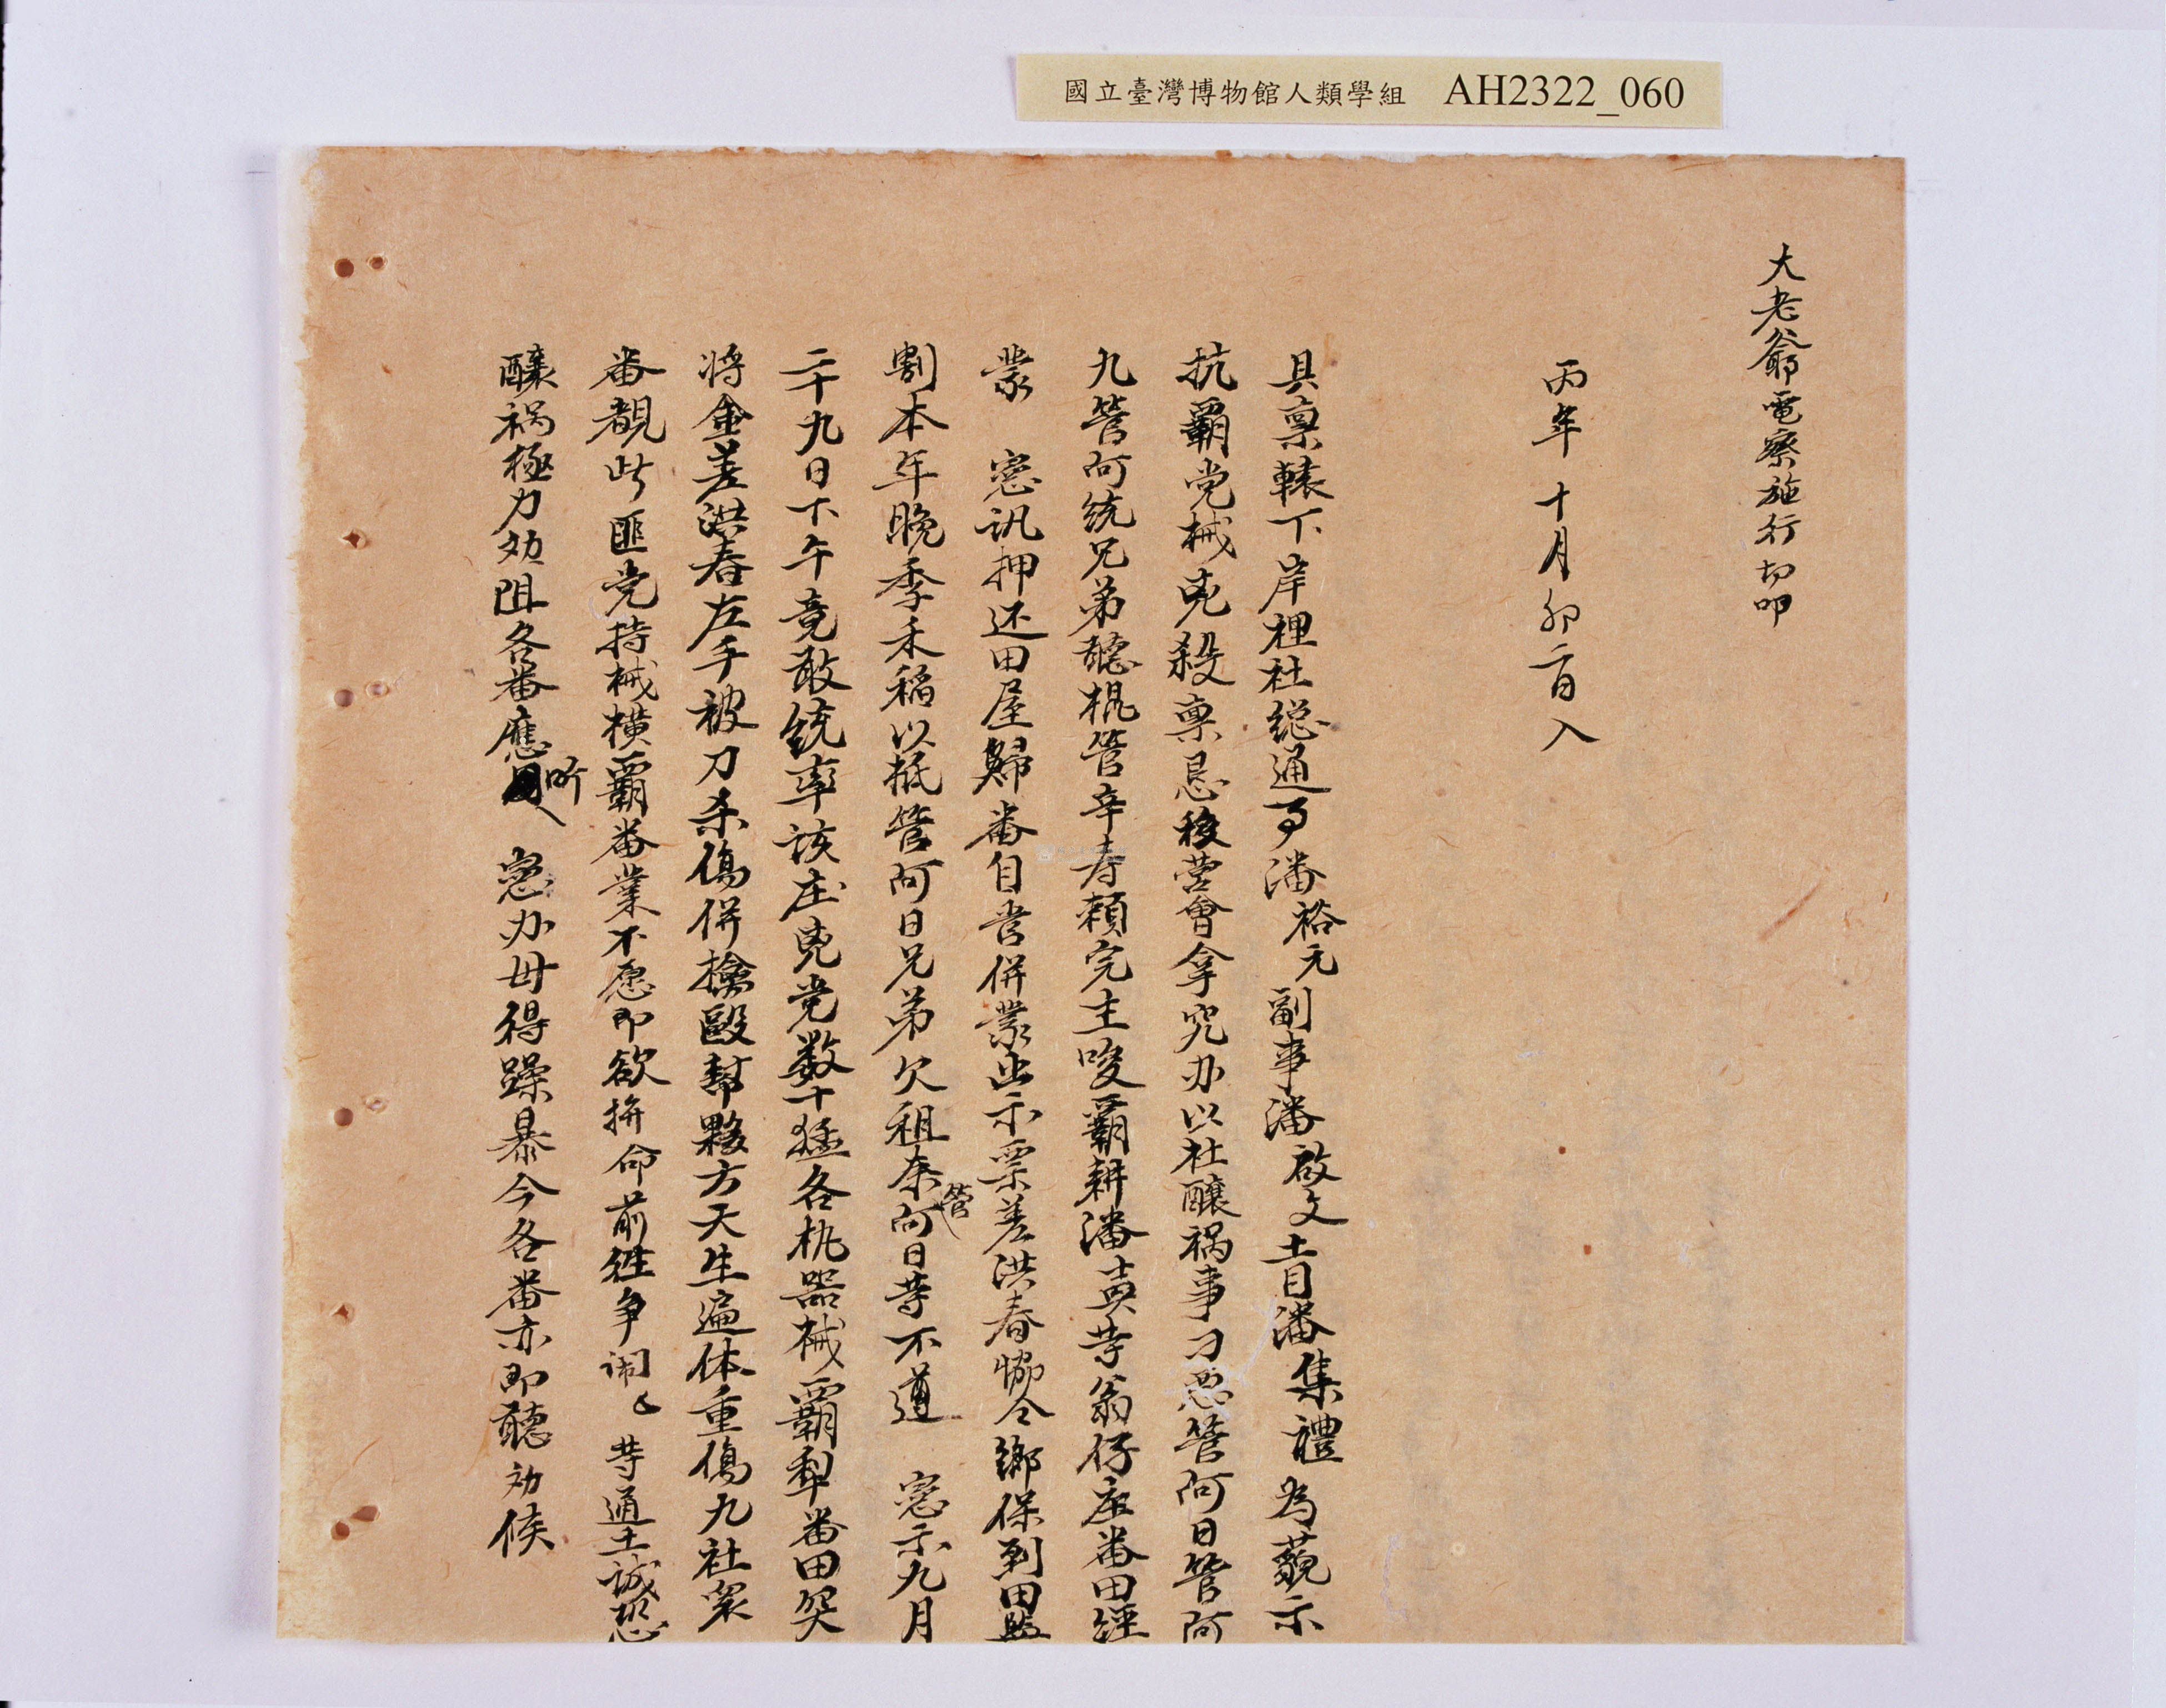 國立臺灣博物館人類學組 AH2322_060
大老爺電察施行切叩
丙年十月卯二百入
具稟轅下岸裡社総通事潘裕元副事潘啟文土目潘集禮為藐示
抗霸党械兇殺稟恳移营會拿究办以社釀禍事刁惡管阿日管阿
九管阿统兄弟聽棍管辛寿賴完主唆霸耕潘吉英等翁仔庄番田經
蒙 憲訊押还田屋歸番自耆併蒙出示票差洪春協仝鄉保到田監
割本年晚季禾稲以抵管阿日兄弟欠租奈管阿日等不遵 憲示九月
二十九日下午竟敢统率该庄兇党数十猛各执器械霸犁番田突
将金差洪春左手被刀杀傷併擒毆幫夥方天生遍体重傷九社衆
番覩此匪党持械横霸番業不愿即欲拚命前往争闹乀等通土誠恐
釀禍極力劝阻各番應听 憲办毋得躁暴今各番亦即聽劝候